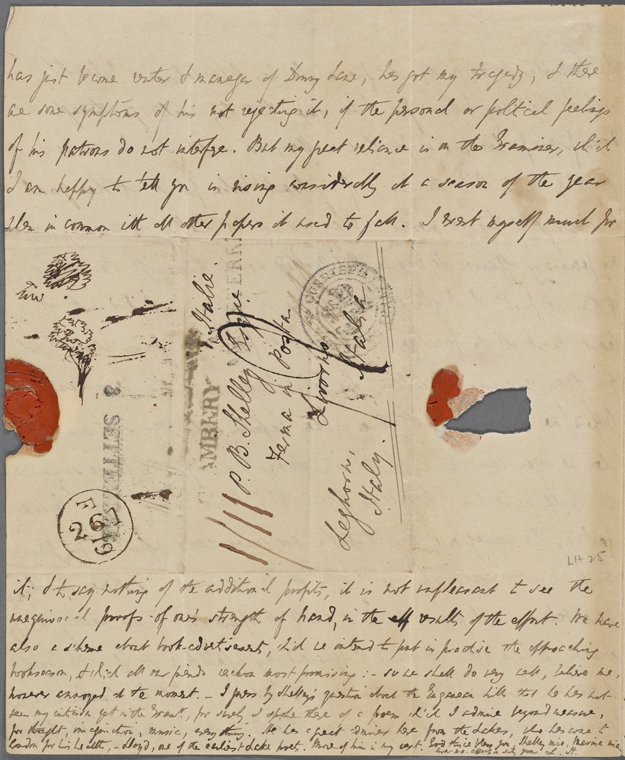 has just become writer & manager of Drury Lane, has got my tragedy, & there
are some symptoms of his not rejecting it, if the personal or political feelings
of his patrons do not interfere. But my great reliance is on the Examiner, which
I am happy to tell you is rising considerably at a season of the year
when in common with all other papers it used to fall. I exert myself much for
P. B. Shelley
Ferma in Posta
Livorno
Italie.
Italia
Leghorn,
Italy.
AMBERY
F
26
19
LH 25
it; & to say nothing of the additional profits, it is not unpleasant to see the
unequivocal proofs of one's strength of hand, in the eff results of the effort. We have
also a scheme about book-advertisements, which we intend to put in practise the approaching
bookseason, & which all our friends reckon most promising: – so we shall do very well, believe me,
however annoyed at the moment. – I guess by Shelley's question about the Euganean Hills that he has not
seen my criticism yet in the Examr., for surely I spoke there of a poem which I admire beyond measure,
for thought, imagination, music, everything. He has a great admirer here from the Lakes, who has come to
London for his health, – Lloyd, one of the earliest Lake poets. More of him in my next. God bless you, Shelley mio, Marina mia
L. H.